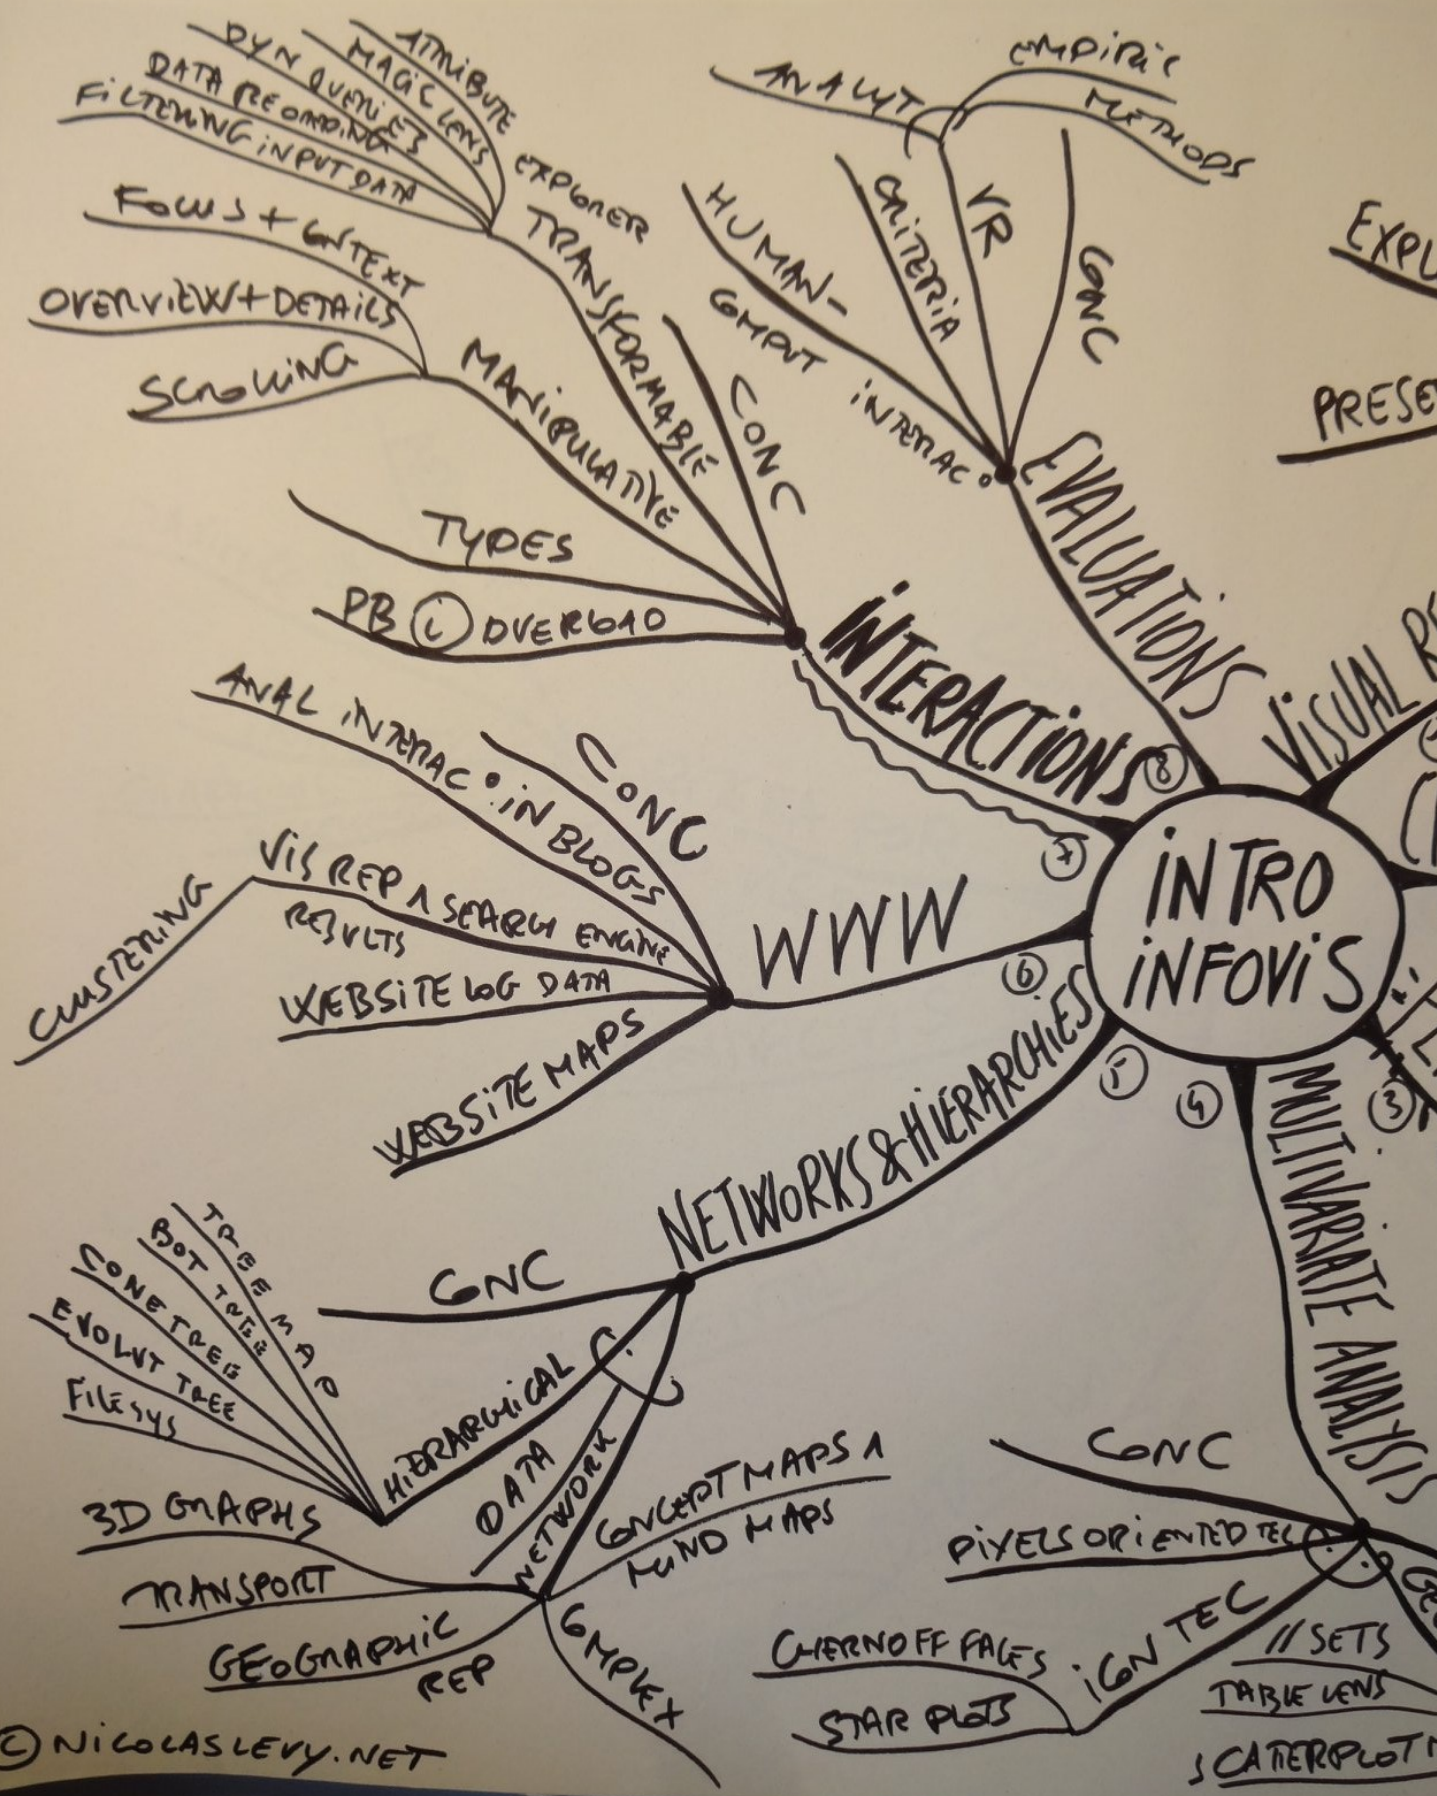 INTRO
INFOVIS
EVALUATIONS
8
HUMAN-
COMPUT INTERAC°
CRITERIA
VR
ANALYT
EMPIRIC
METHODS
CONC
INTERACTIONS
7
CONC
TRANSFORMABLE
ATTRIBUTE
EXPLORER
MAGIC LENS
DYN QUERIES
DATA REORDING
FILTERING INPUT DATA
MANIPULATIVE
FOCUS + CONTEXT
OVERVIEW + DETAILS
SCROLLING
TYPES
PB i OVERLOAD
WWW
6
CONC
ANAL INTERAC° IN BLOGS
VIS REP 1 SEARCH ENGINE
RESULTS
CLUSTERING
WEBSITE LOG DATA
WEBSITE MAPS
NETWORKS & HIERARCHIES
5
CONC
HIERARCHICAL
TREE MAP
BOT TREE
CONE TREE
EVOLUT TREE
FILESYS
DATA
NETWORK
CONCEPT MAPS 1
MIND MAPS
3D GRAPHS
TRANSPORT
GEOGRAPHIC
REP
COMPLEX
MULTIVARIATE ANALYSIS
4
CONC
PIXELS ORIENTED TEC
ICON TEC
CHERNOFF FACES
STAR PLOTS
// SETS
TABLE LENS
SCATTERPLOT M
GEO
3
VISUAL RE
EXPL
PRESE
© NICOLASLEVY.NET